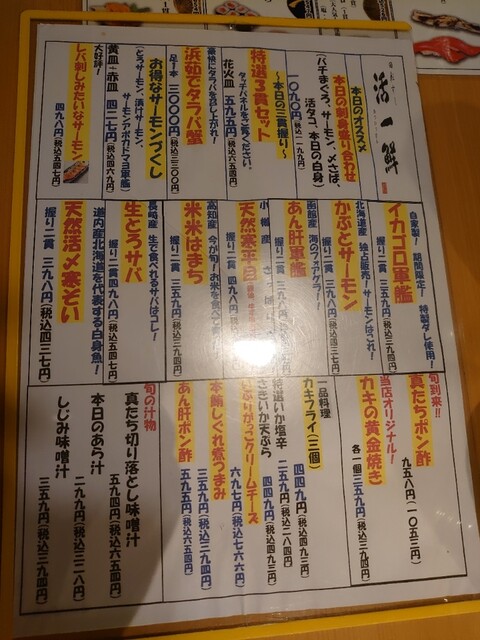 活一鮮
本日のオススメ
本日の刺身盛り合わせ
(バチまぐろ、サーモン、〆さば、
活タコ、本日の白身)
一〇九〇円(税込一一九九円)
〜本日の三貫握り〜
特選3貫セット
タッチパネルをご覧ください。
花火皿 五九五円(税込六五四円)
豪快にタラバを召し上がれ!
浜茹でタラバ蟹
足1本 三〇〇〇円(税込三三〇〇円)
お得なサーモンづくし
(とろサーモン、漬けサーモン、
サーモンアボカドマヨ軍艦)
黄皿一赤皿 四二七円(税込四六九円)
大好評!
レバ刺しみたいなサーモン
四九八円(税込五四七円)
自家製!期間限定!特製ダレ使用!
イカゴロ軍艦
握り二貫 三五九円(税込三九四円)
北海道産 独占販売!サーモンはこれ!
かぶとサーモン
握り二貫 三九八円(税込四三七円)
函館産 海のフォアグラ!
あん肝軍艦
握り二貫 三五九円
小樽産
天然寒平目
握り二貫 四九八円
高知産 今が旬!お米を食べて
米米はまち
握り二貫 三五九円(税込三九四円)
長崎産 生で食べれるサバはコレ!
生とろサバ
握り二貫 四九八円(税込五四七円)
道内産北海道を代表する白身魚!
天然活〆寒ぞい
握り二貫 三九八円(税込四三七円)
旬到来!!
真たちポン酢
九五八円(一〇五三円)
当店オリジナル!
カキの黄金焼き
各一個三五九円(税込三九四円)
一品料理
カキフライ(三個)
四四九円(税込四九三円)
特選いか塩辛
二五九円(税込二八四円)
さきいか天ぷら
四四九円(税込四九三円)
いぶりがっこクリームチーズ
六九七円(税込七六六円)
本鮪しぐれ煮つまみ
三五九円(税込三九四円)
あん肝ポン酢
五九五円(税込六五四円)
旬の汁物
真たち切り落とし味噌汁
五九四円(税込六五四円)
本日のあら汁
二九九円(税込三二八円)
しじみ味噌汁
三五九円(税込三九四円)